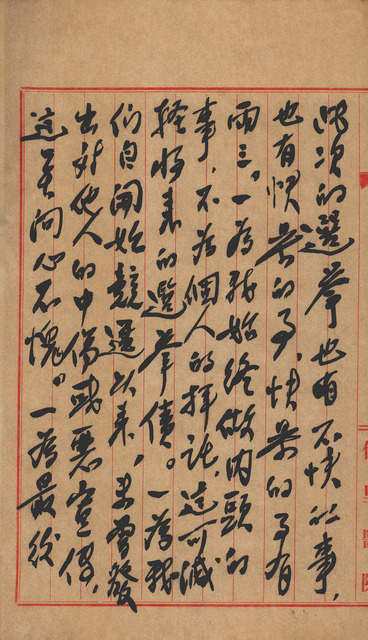 此次的選舉也有不快的事，
也有快樂的事，快樂的事有
兩三，一為我始終做內頭的
事，不為個人的拜託，這可減
輕將來的選舉債。一為我
們自開始競選以來，未曾發
出對他人的中傷或惡宣傳，
這是問心不愧。一為最後
醫院